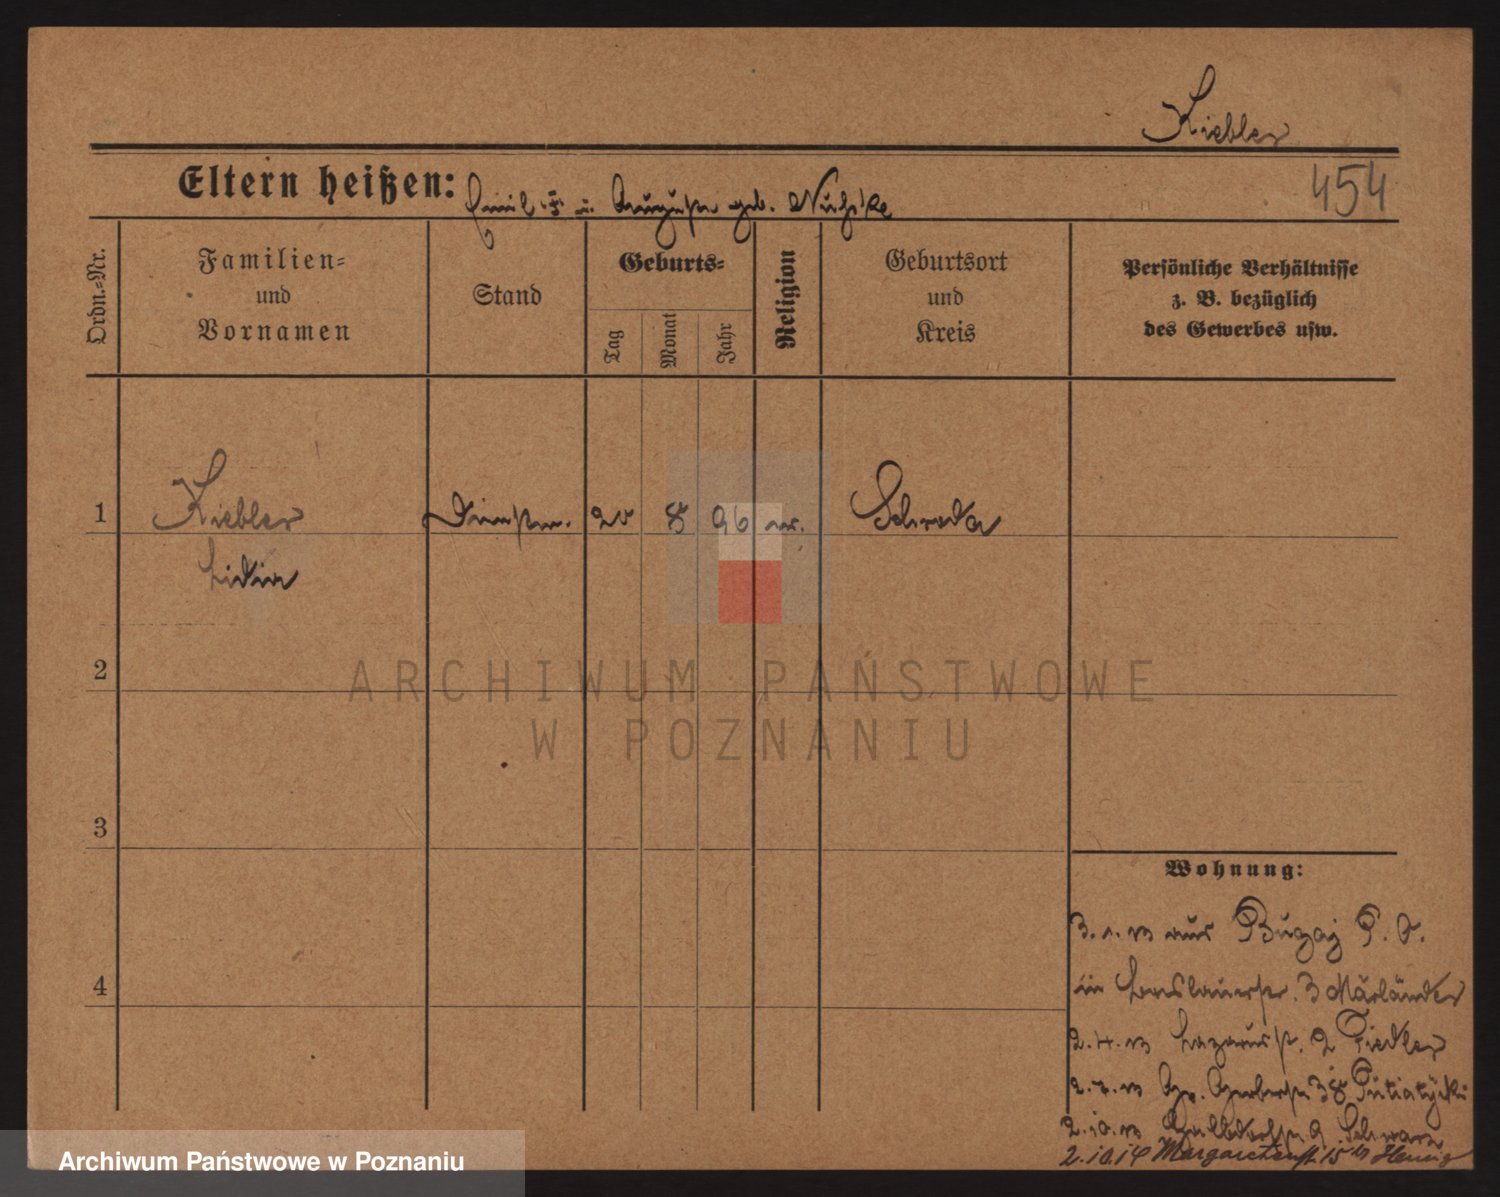 Kiebler
454
Eltern heißen: Emil u. Auguste geb.
Ordn.-Nr.
Familien-
und
Vornamen
Stand
Geburts-
Tag
Monat
Jahr
Religion
Geburtsort
und
Kreis
Persönliche Verhältnisse
z. B. bezüglich
des Gewerbes usw.
1
Kiebler
Lidia
Dienstm. 20 8 96 ev. Schroda
2
3
4
Wohnung:
3.1.13 aus Bugaj P. O.
in 3 Märländer
2.4.13 Lazarusstr. 2 Fiedler
2.7.13 Gr. Gerberstr. 38
2.10.13 9 Schwarz
2.10.14 Margaretenstr. 15 Hennig
ARCHIWUM PAŃSTWOWE
W POZNANIU
Archiwum Państwowe w Poznaniu